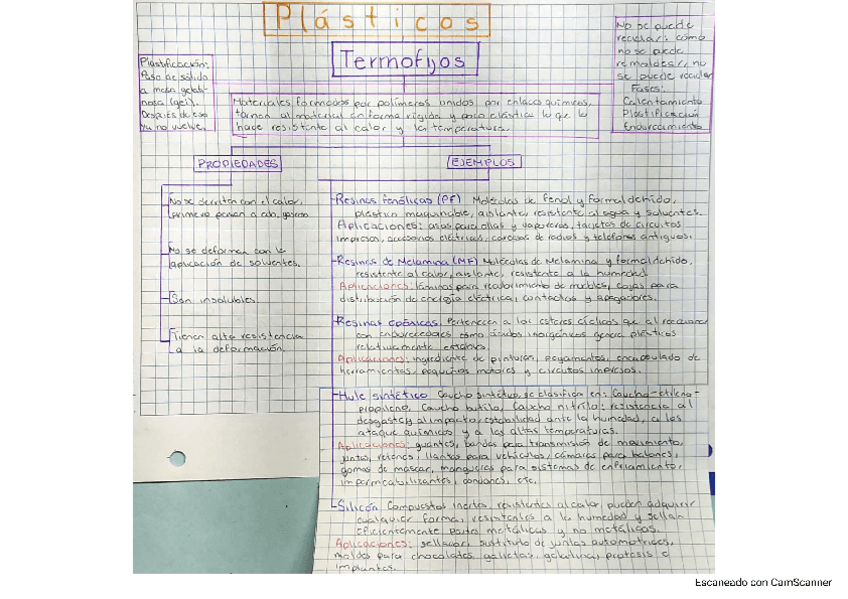 Plásticos
Termofijos
Plastificación:
Pasa de sólido
a masa gelati-
nosa (gel).
Después de eso
ya no vuelve.
No se puede
reciclar: cómo
no se puede
remoldear, no
se puede reciclar
Fases:
Calentamiento
Plastificación
Endurecimiento
Materiales formados por polímeros unidos por enlaces químicos,
tornan al material en forma rígida y poco elástica lo que lo
hace resistente al calor y la temperatura.
PROPIEDADES
No se derriten con el calor,
primero pasan a edo. gaseoso
No se deforman con la
aplicación de solventes.
Son insolubles.
Tienen alta resistencia
a la deformación.
EJEMPLOS
Resinas fenólicas (PF) Moléculas de fenol y formaldehido,
plástico maquinable, aislante, resistente al agua y solventes.
Aplicaciones: asas para ollas y vaporeras, tarjetas de circuitos
impresos, accesorios eléctricos, carcasas de radios y teléfonos antiguos.
Resinas de Melamina (MF) Moléculas de Melamina y formaldehido,
resistente al calor, aislante, resistente a la humedad
Aplicaciones: láminas para recubrimiento de muebles, cajas para
distribución de energía eléctrica, contactos y apagadores.
Resinas epóxicas: Pertenecen a los esteres cíclicos que al reaccionar
con endurecedores como ácidos inorgánicos genera plásticos
relativamente
Aplicaciones: ingrediente de pinturas, pegamentos, encapsulado de
herramientas, pequeños motores y circuitos impresos.
Hule sintético Caucho sintético, se clasifica en: Caucho-etileno-
propileno, Caucho butilo, Caucho nitrilo: resistencia al
desgaste y al impacto, estabilidad ante la humedad, a los
ataque químicos y a las altas temperaturas.
Aplicaciones: guantes, bandas para transmisión de movimiento,
juntas, retenes, llantas para vehículos, cámaras para balones,
gomas de mascar, mangueras para sistemas de enfriamiento,
impermeabilizantes, condones, etc.
Silicón Compuestos inertes, resistentes al calor, pueden adquirir
cualquier forma, resistentes a la humedad y sellan
eficientemente partes metálicas y no metálicas.
Aplicaciones: sellador, sustituto de juntas automotrices,
moldes para chocolates, galletas, gelatinas, protesis e
implantes.
Escaneado con CamScanner